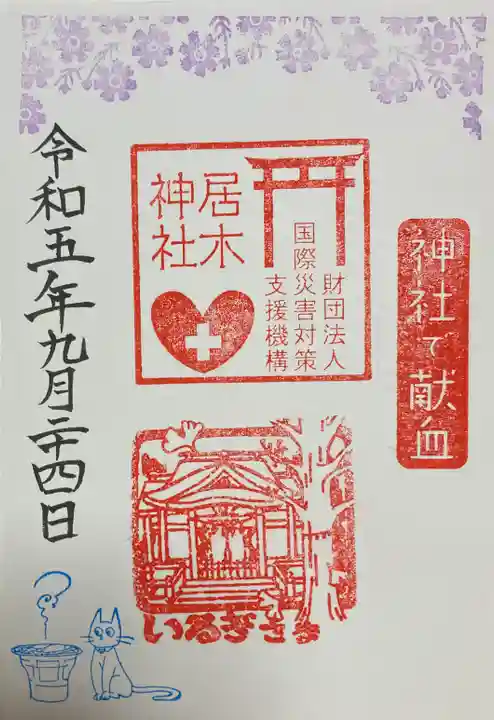 神社で献血
居木
神社
財団法人
国際災害対策
支援機構
いるぎさま
令和五年九月二十四日